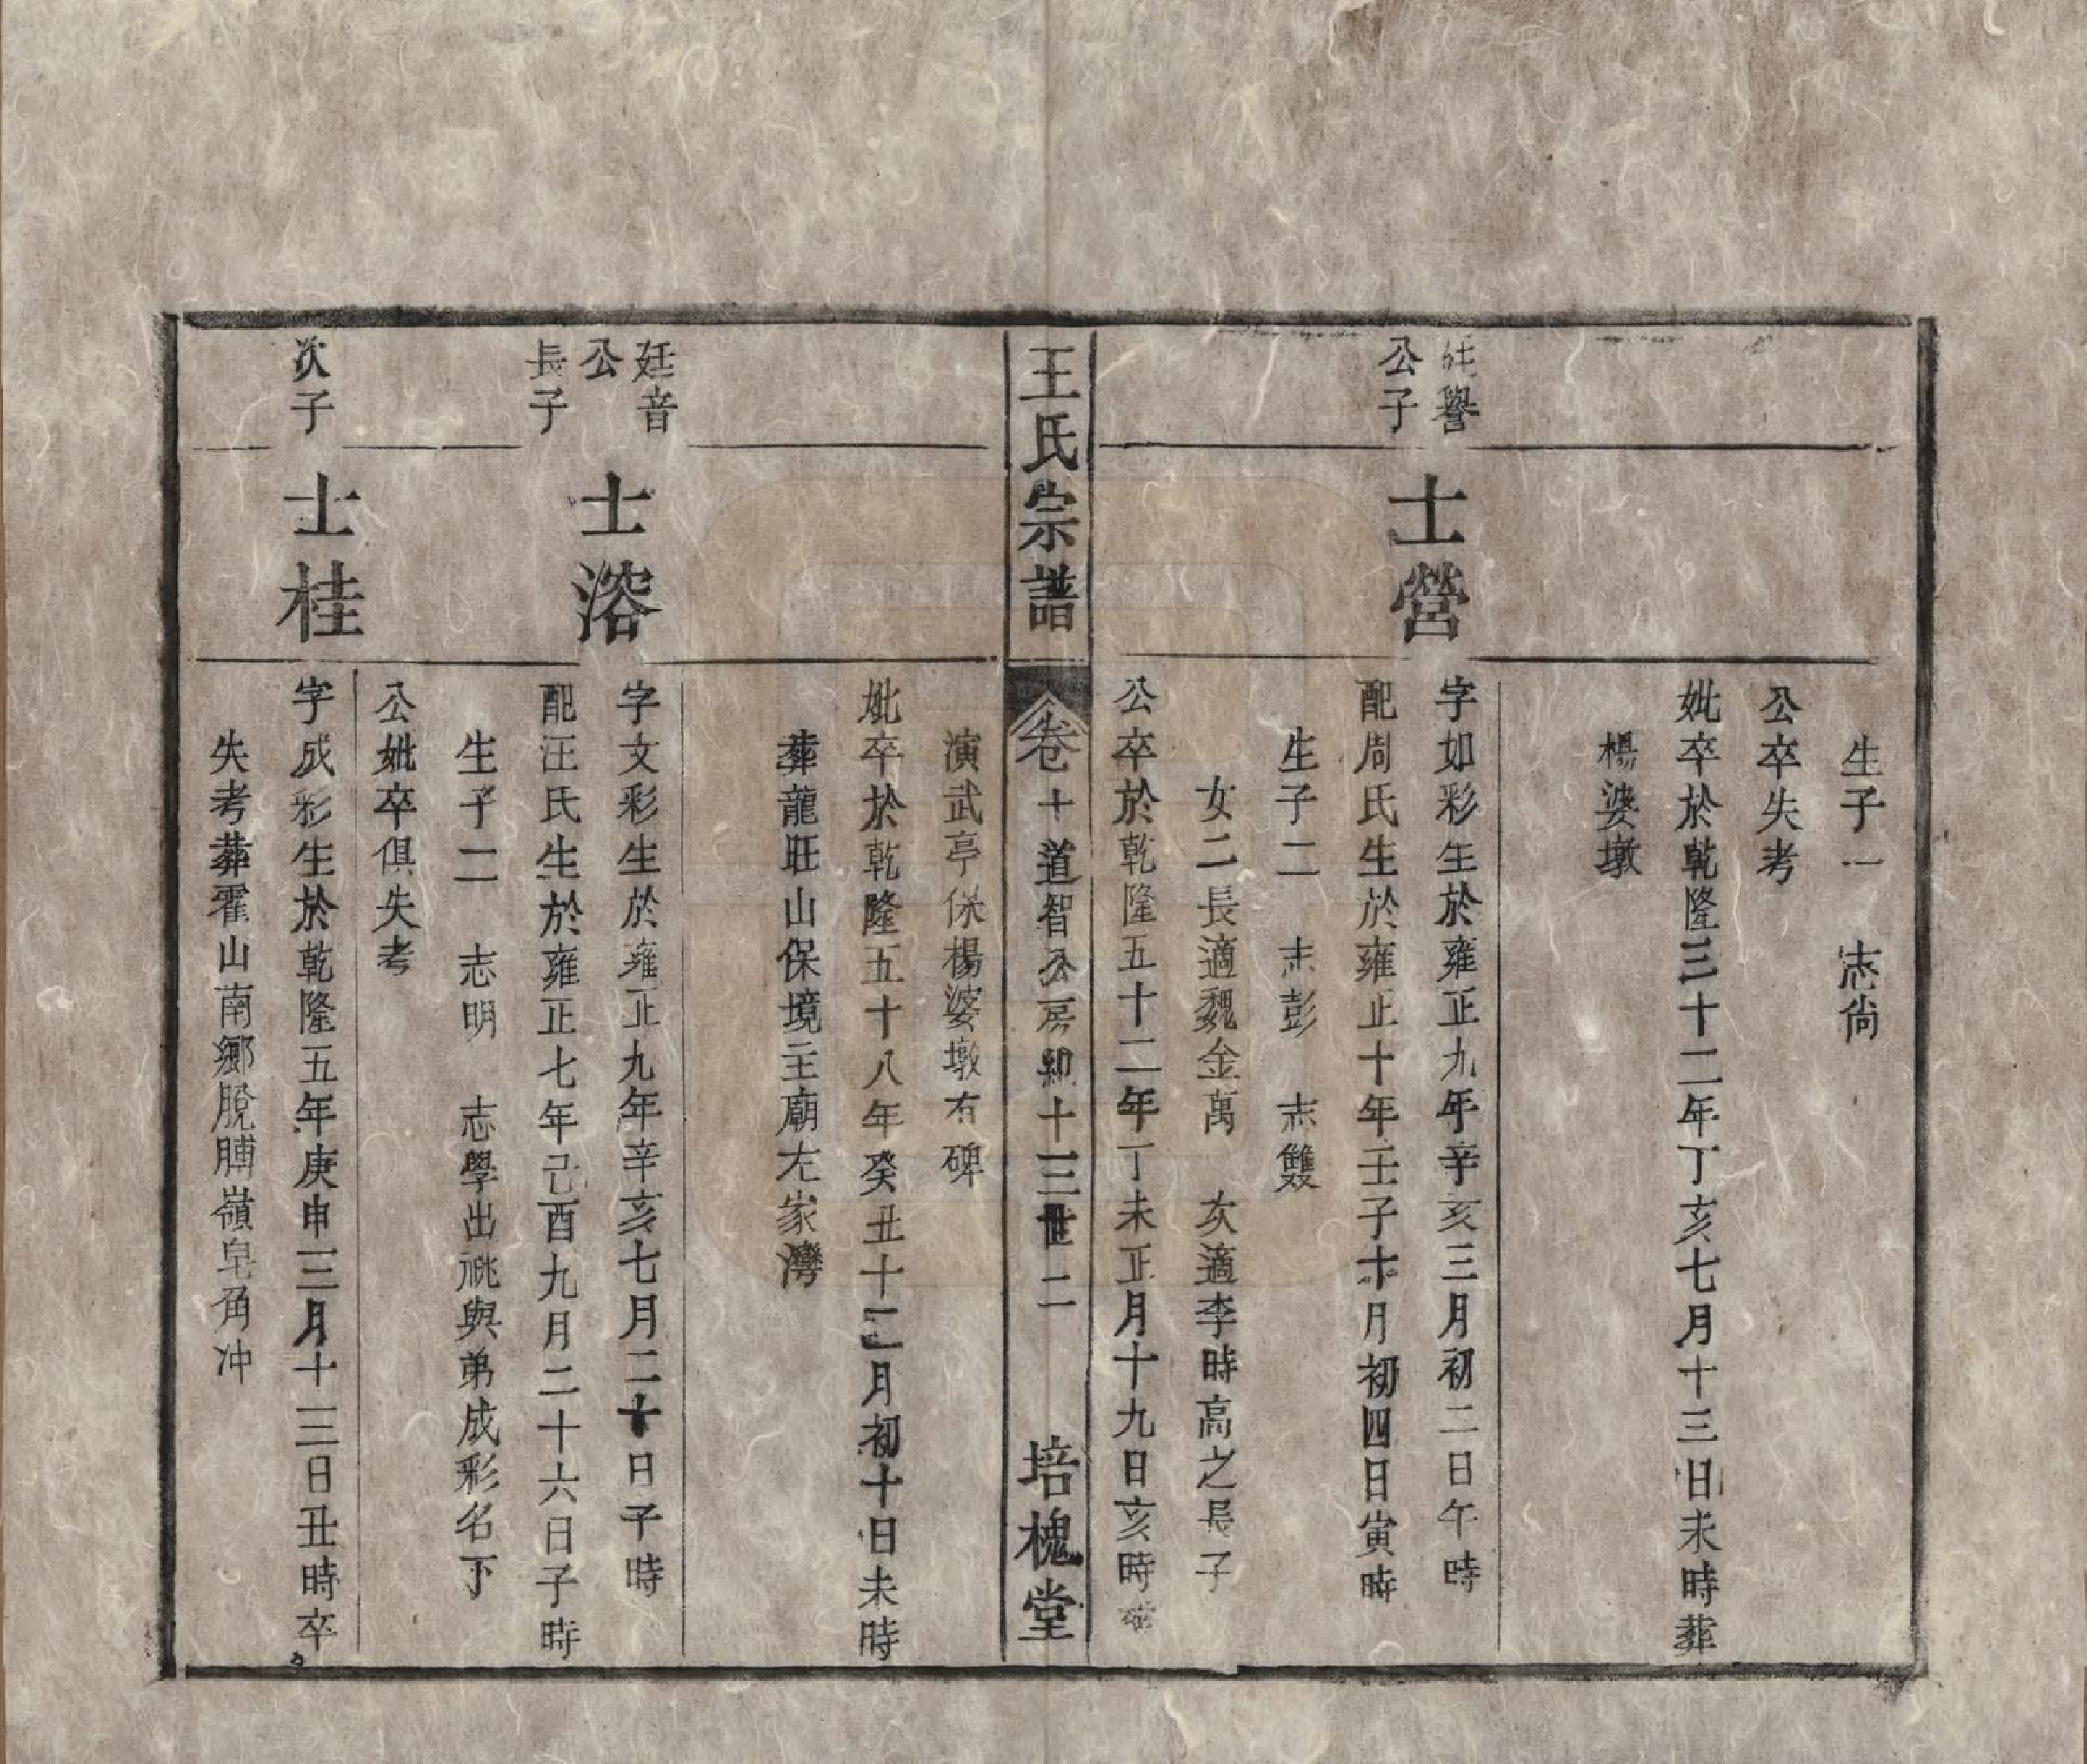 生子一　志尚
公卒失考
妣卒於乾隆三十二年丁亥七月十三日未時葬
楊婆墩
譽
公子
士營
字如彩生於雍正九年辛亥三月初二日午時
配周氏生於雍正十年壬子十月初四日寅時
生子二　志彭　志雙
女二長適魏金萬　次適李時高之長子
公卒於乾隆五十二年丁未正月十九日亥時
王氏宗譜
卷十道智公房紀十三世　二
培槐堂
演武亭保楊婆墩有碑
妣卒於乾隆五十八年癸丑十二月初十日未時
葬龍旺山保境主廟左家灣
廷音
公
長子
士溶
字文彩生於雍正九年辛亥七月二十日子時
配汪氏生於雍正七年己酉九月二十六日子時
生子二　志明　志學出祧與弟成彩名下
公妣卒俱失考
次子
士桂
字成彩生於乾隆五年庚申三月十三日丑時卒
失考葬霍山南鄉脫膊嶺皂角冲